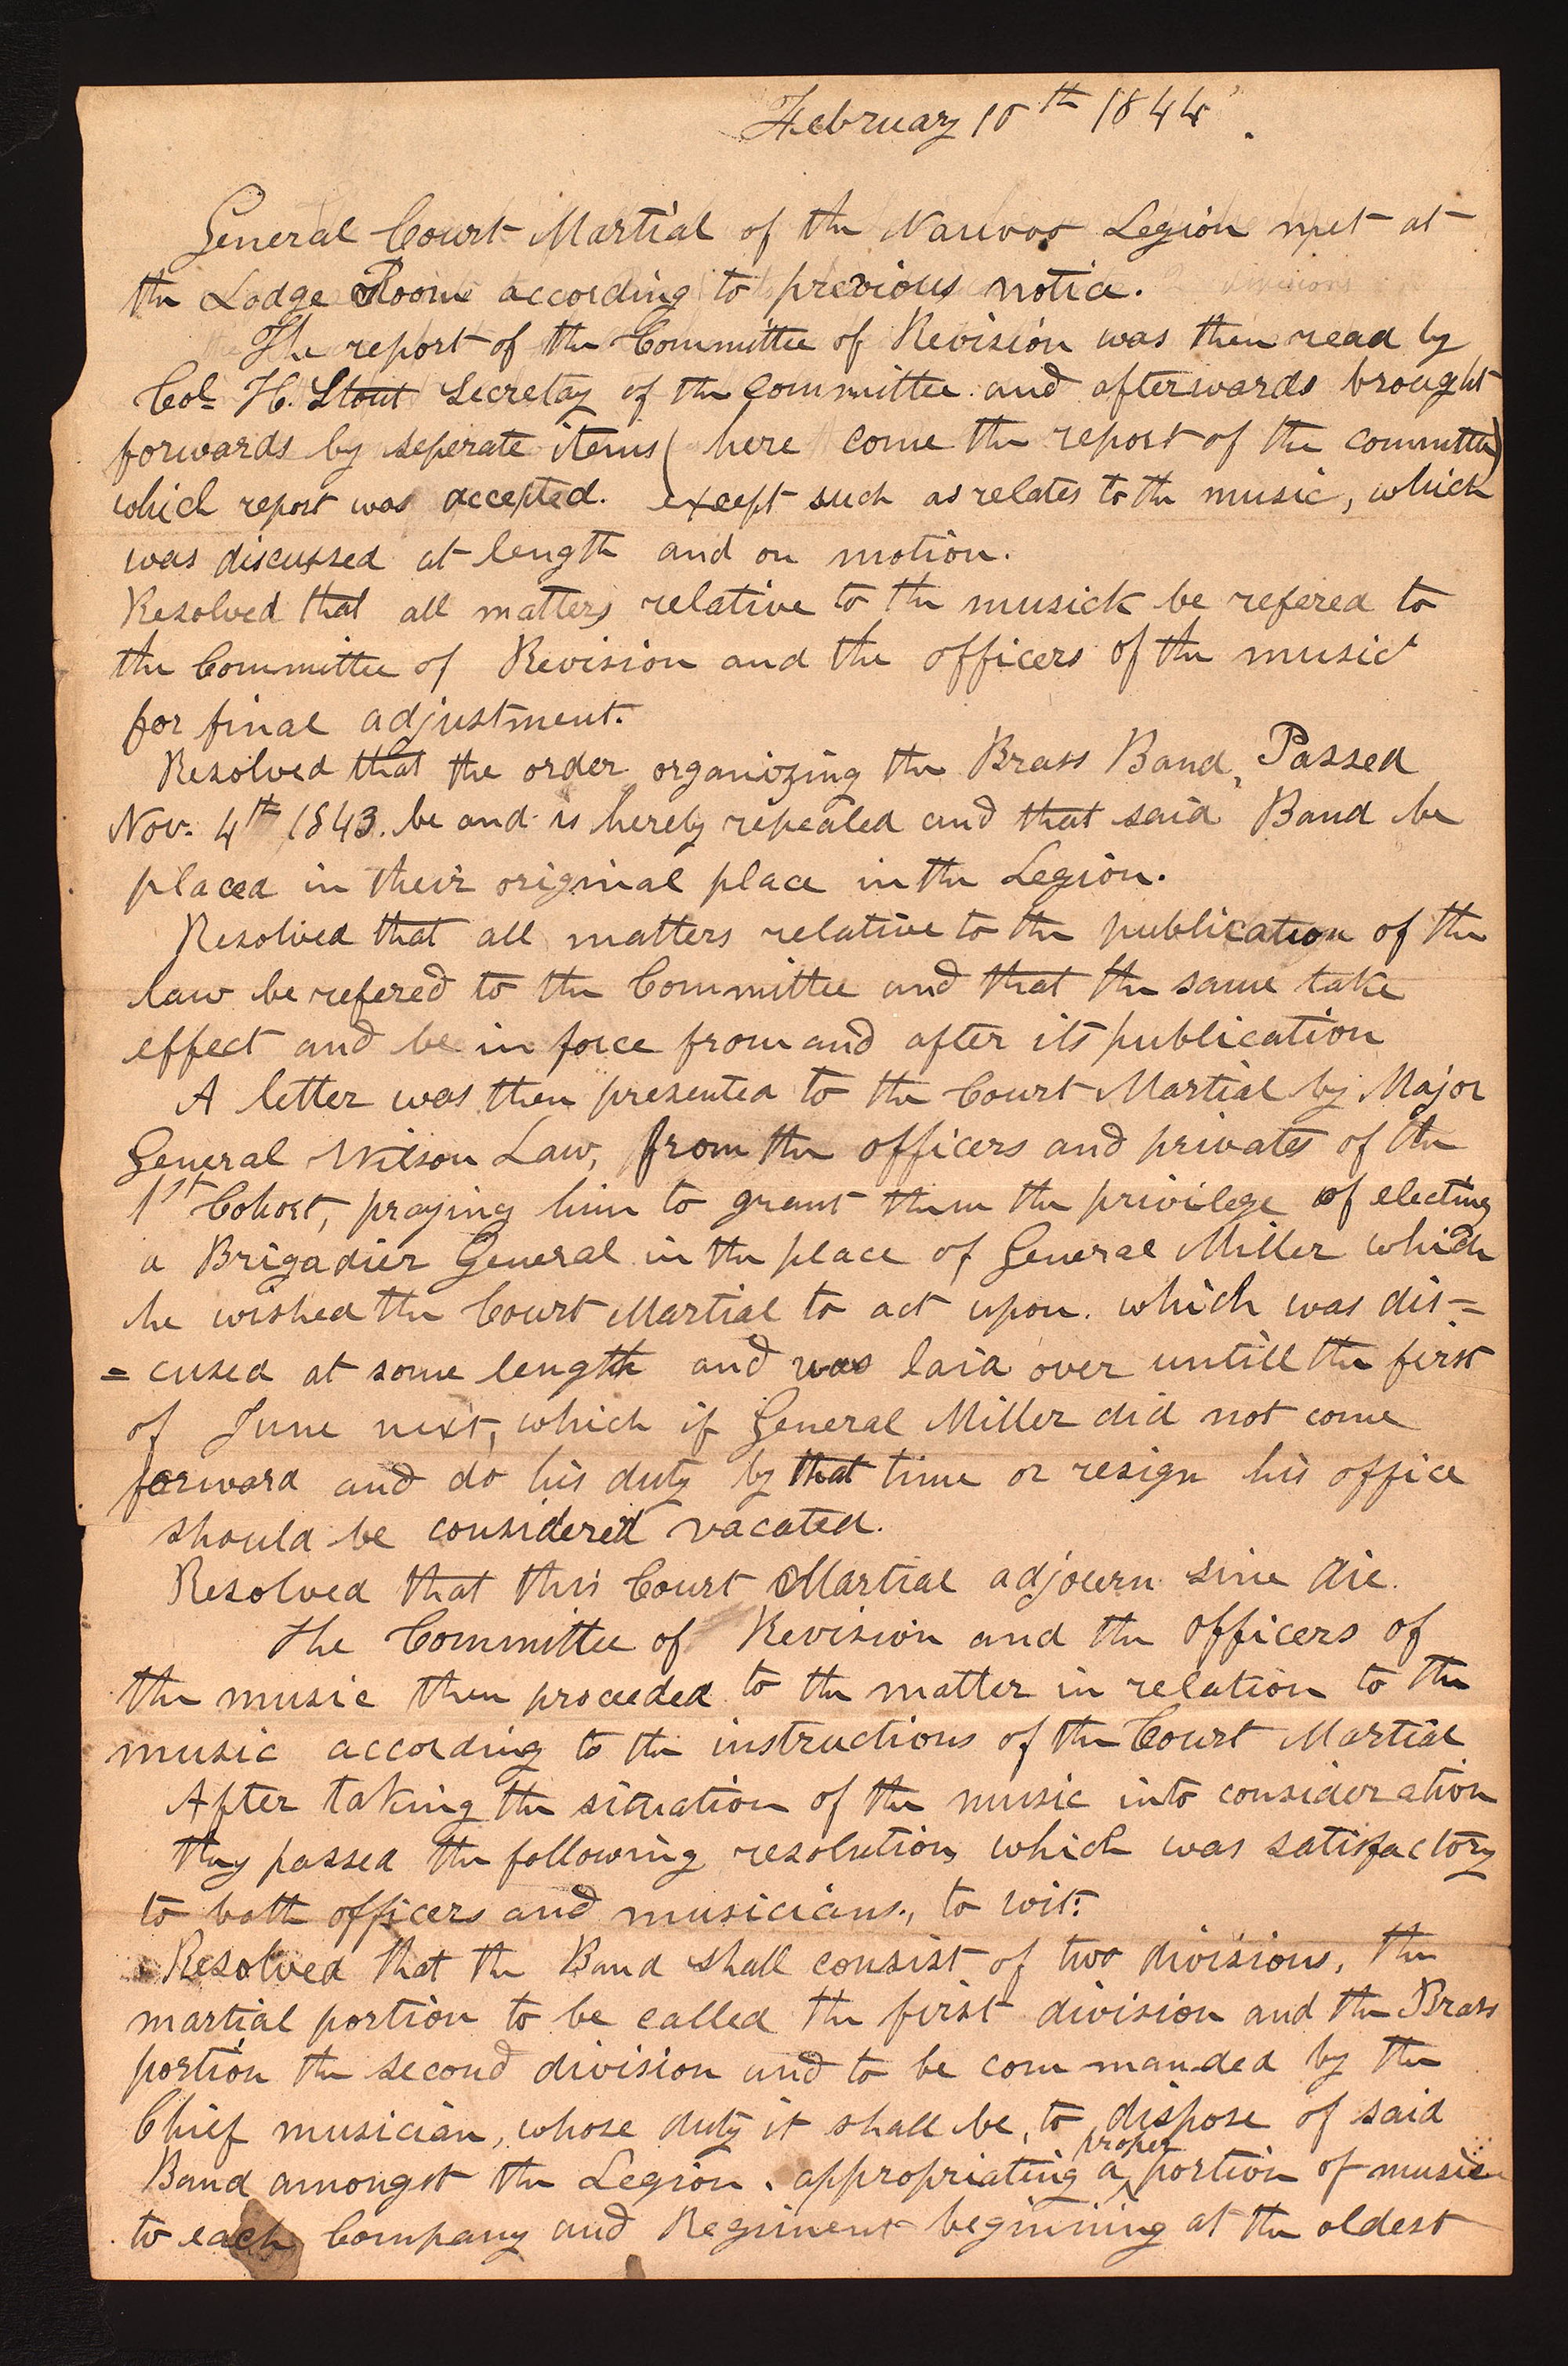 February 10th 1844.
General Court Martial of the Nauvoo Legion met at
the Lodge Room according to previous notice.
The report of the Committee of Revision was then read by
Col. H. Stout Secretay of the committee and afterwards brought
forwards by seperate items (here come the report of the committee)
which report was accepted. except such as relates to the music, which
was discussed at length and on motion.
Resolved that all matters relative to the musick be refered to
the Committee of Revision and the officers of the music
for final adjustment.
Resolved that the order organizing the Brass Band, Passed
Nov. 4th 1843. be and is hereby repealed and that said Band be
placed in their original place in the Legion.
Resolved that all matters relative to the publication of the
law be refered to the Committee and that the same take
effect and be in force from and after its publication
A letter was then presented to the Court Martial by Major
General Wilson Law, from the officers and privates of the
1st Cohort, praying him to grant them the privilege of electing
a Brigadier General in the place of General Miller which
he wished the Court Martial to act upon. which was dis=
=cused at some length and was laid over untill the first
of June next, which if General Miller did not come
forward and do his duty by that time or resign his office
should be considered vacated.
Resolved that this Court Martial adjourn sine die.
The Committee of Revision and the officers of
the music then proceeded to the matter in relation to the
music according to the instructions of the Court Martial
After taking the situation of the music into consideration
they passed the following resolution which was satisfactory
to both officers and musicians., to wit:
Resolved that the Band shall consist of two divisions, the
martial portion to be called the first division and the Brass
portion the second division and to be commanded by the
Chief musician, whose duty it shall be, to dispose of said
Band amongst the Legion. appropriating a proper portion of music
to each Company and Regiment beginning at the oldest